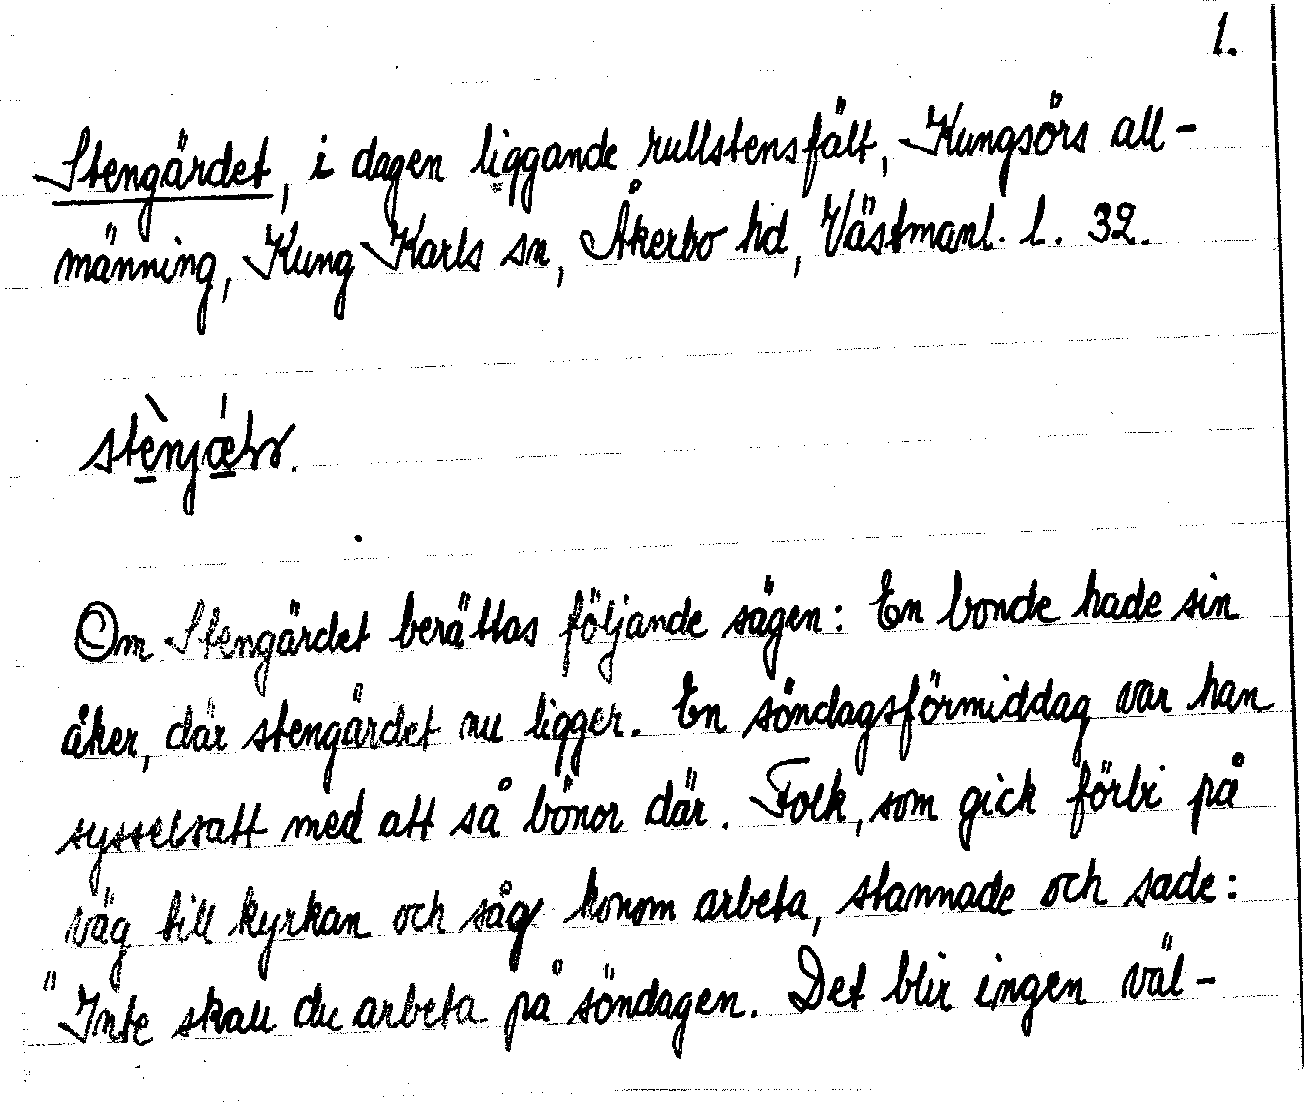 1.
Stengärdet, i dagen liggande rullstensfält, Kungsörs all-
männing, Kung Karls sn, Åkerbo hd, Västmanl. l. 32.
Om Stengärdet berättas följande sägen: En bonde hade sin
åker, där stengärdet nu ligger. En söndagsförmiddag var han
sysselsatt med att så bönor där. Folk, som gick förbi på
väg till kyrkan och såg honom arbeta, stannade och sade:
"Inte skall du arbeta på söndagen. Det blir ingen väl-